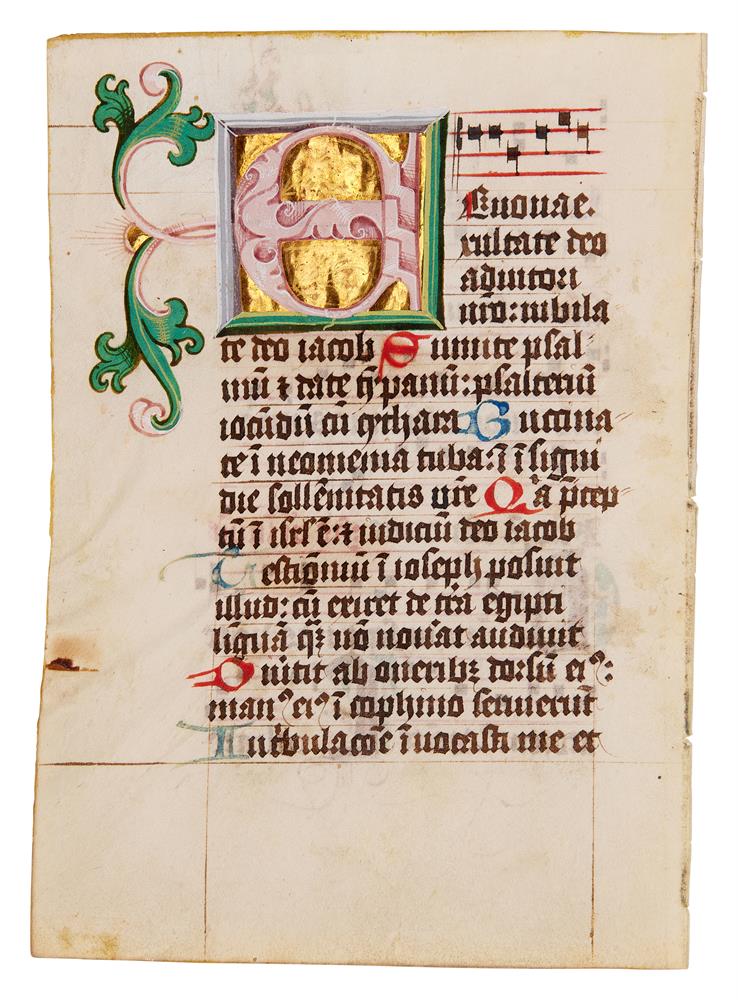 Euouae.
Exultate deo
adiutori
nr̄o: iubila
te deo iacob Sumite psal
mū ⁊ date tȳpanū: psalteriū
iocūdū cū cythara Buccina
te ī neomenia tuba: ī īsigni
die sollēnitatis vr̄e Qa p̄cep
tū ī isrl ē: ⁊ iudiciū deo iacob
Testiōniū ī ioseph posuit
illud: cū exiret de tr̄a egipti
liguā qꝫ nō nou̓at audiuit
Diu̓tit ab oneribꝫ dorsū eiꝰ:
manꝰ eiꝰ ī cophino seruierūt
In tͥbulacōe īuocasti me et